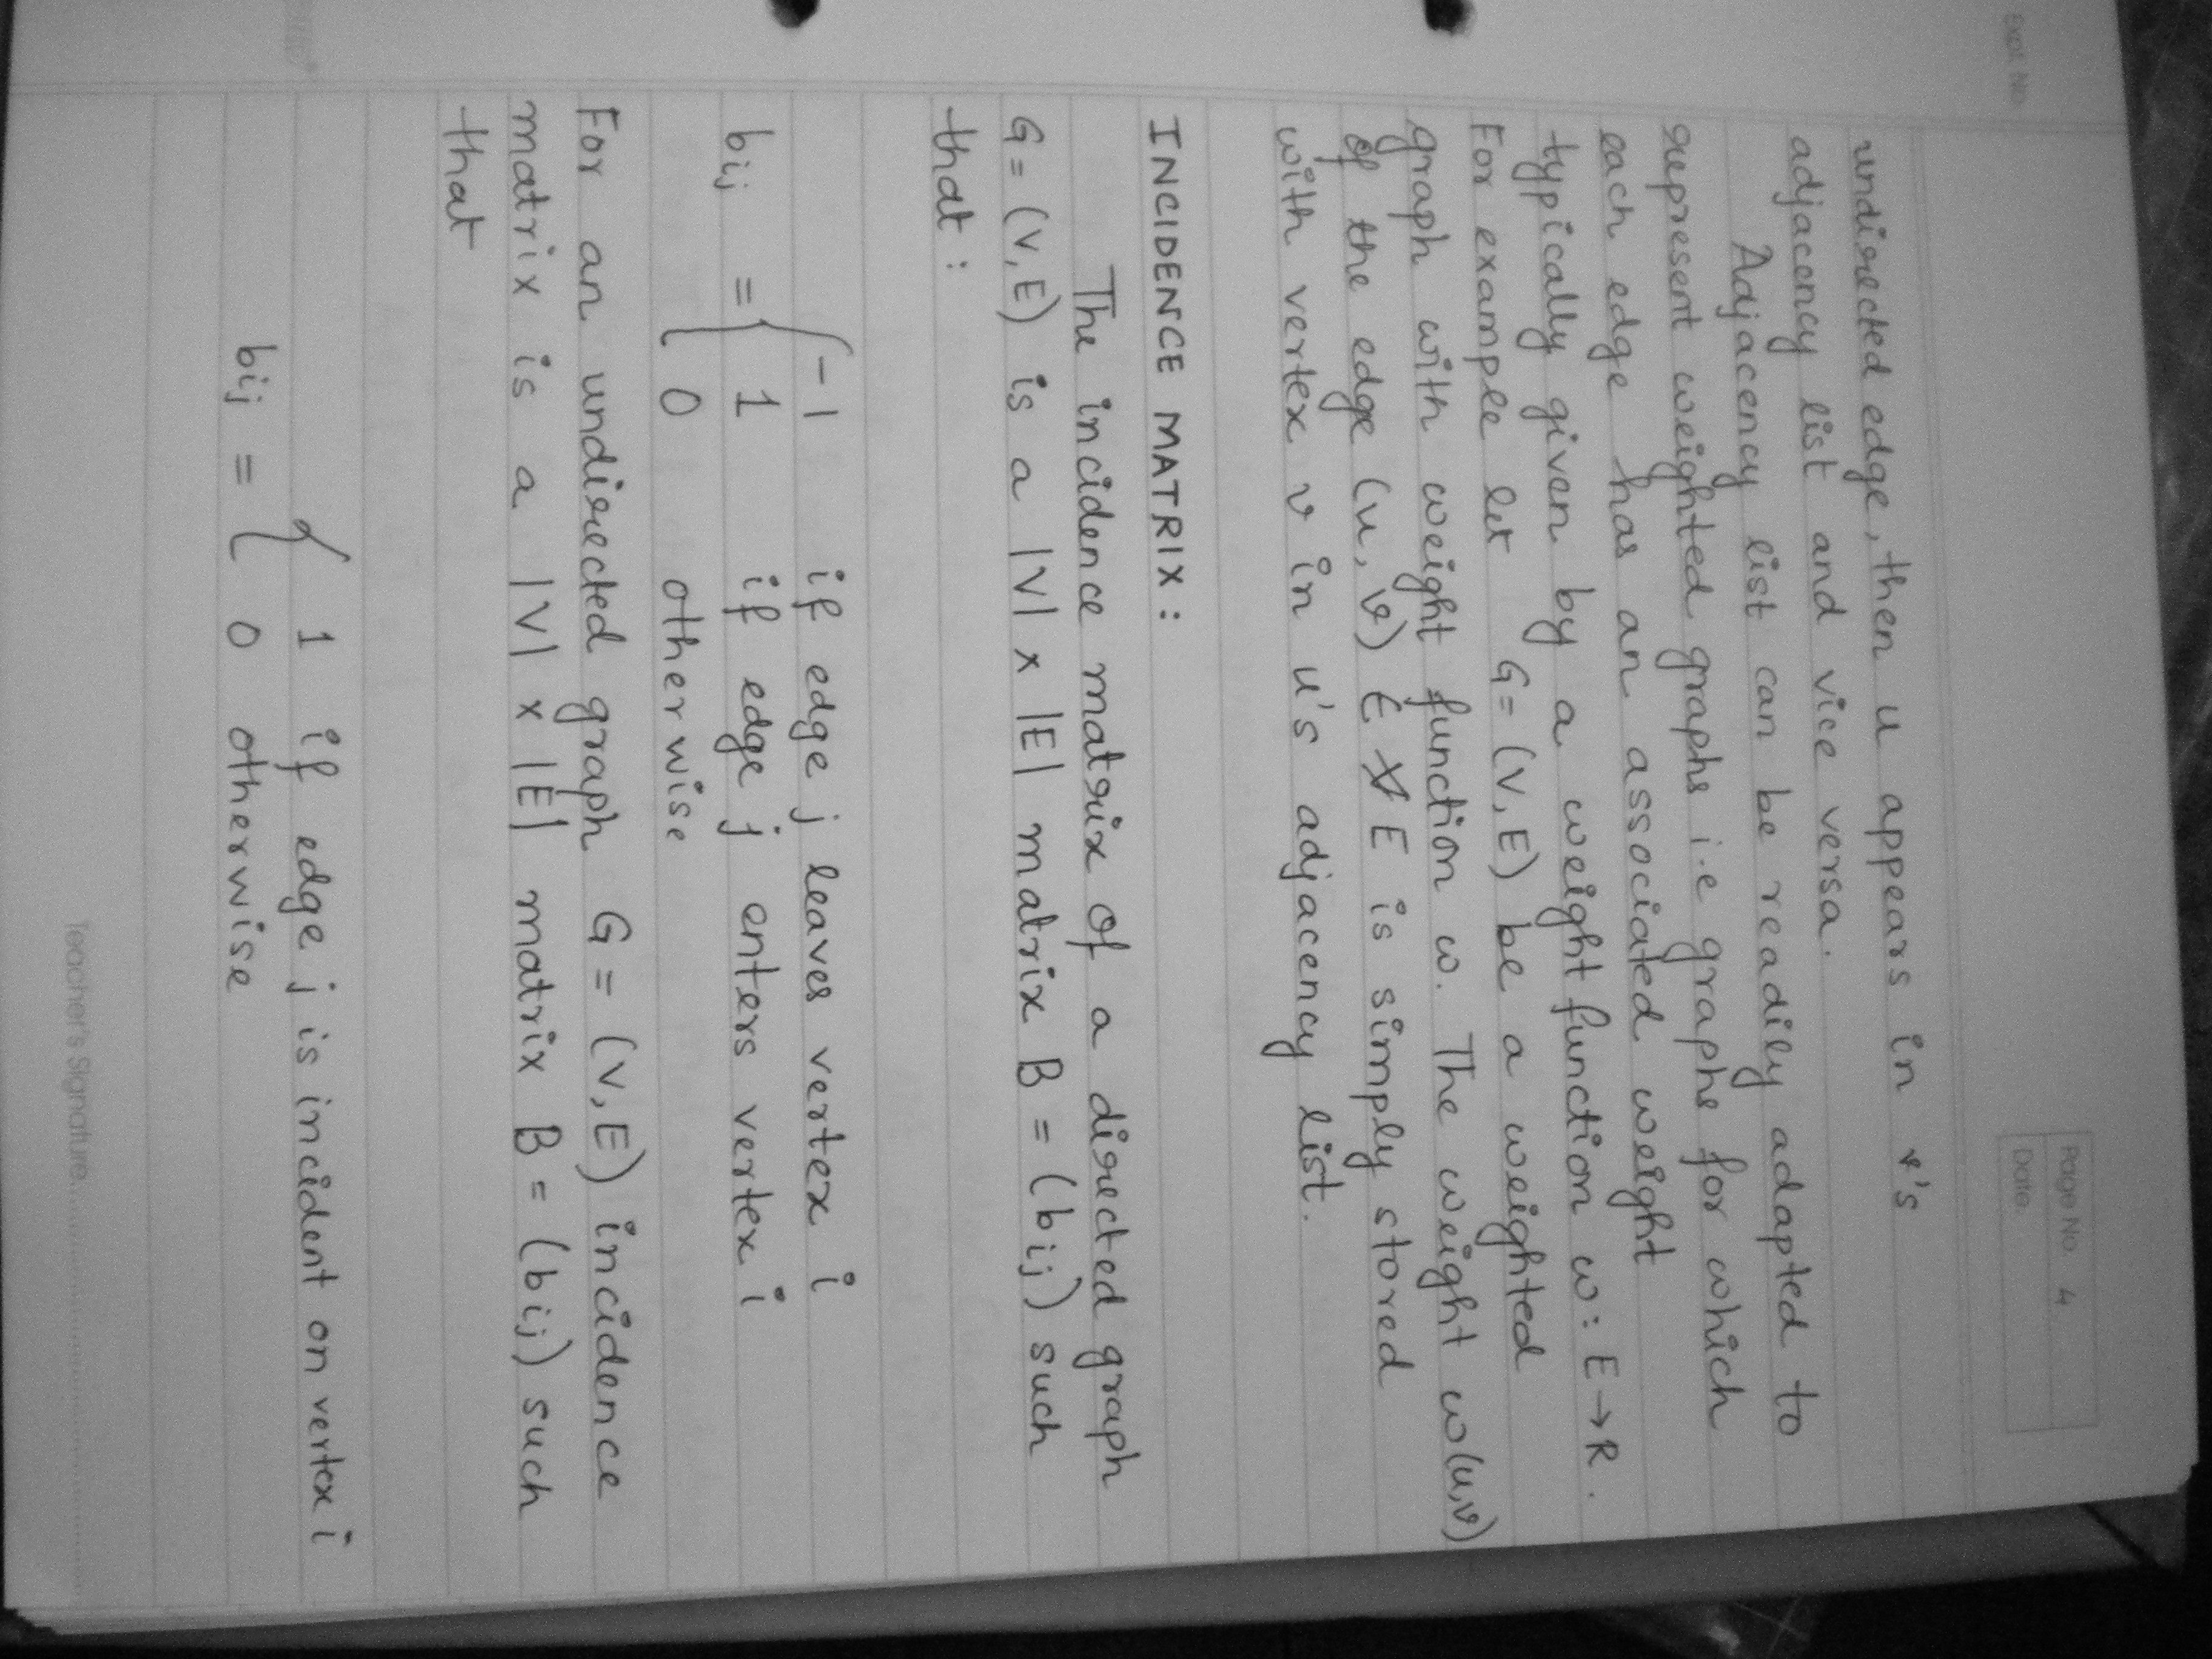 Expt. No.
Page No. 4
Date
undirected edge, then u appears in v's
adjacency list and vice versa.
Adjacency list can be readily adapted to
represent weighted graphs i.e graphs for which
each edge has an associated weight
typically given by a weight function w: E→R.
For example let G= (V, E) be a weighted
graph with weight function w. The weight w(u,v)
of the edge (u, v) ∈ E is simply stored
with vertex v in u's adjacency list.
INCIDENCE MATRIX:
The incidence matrix of a directed graph
G= (V, E) is a |V| x |E| matrix B = (bij) such
that:
-1 if edge j leaves vertex i
bij = { 1 if edge j enters vertex i
0 otherwise
For an undirected graph G = (V, E) incidence
matrix is a |V| x |E| matrix B = (bij) such
that
1 if edge j is incident on vertex i
bij = { 0 otherwise
Teacher's Signature